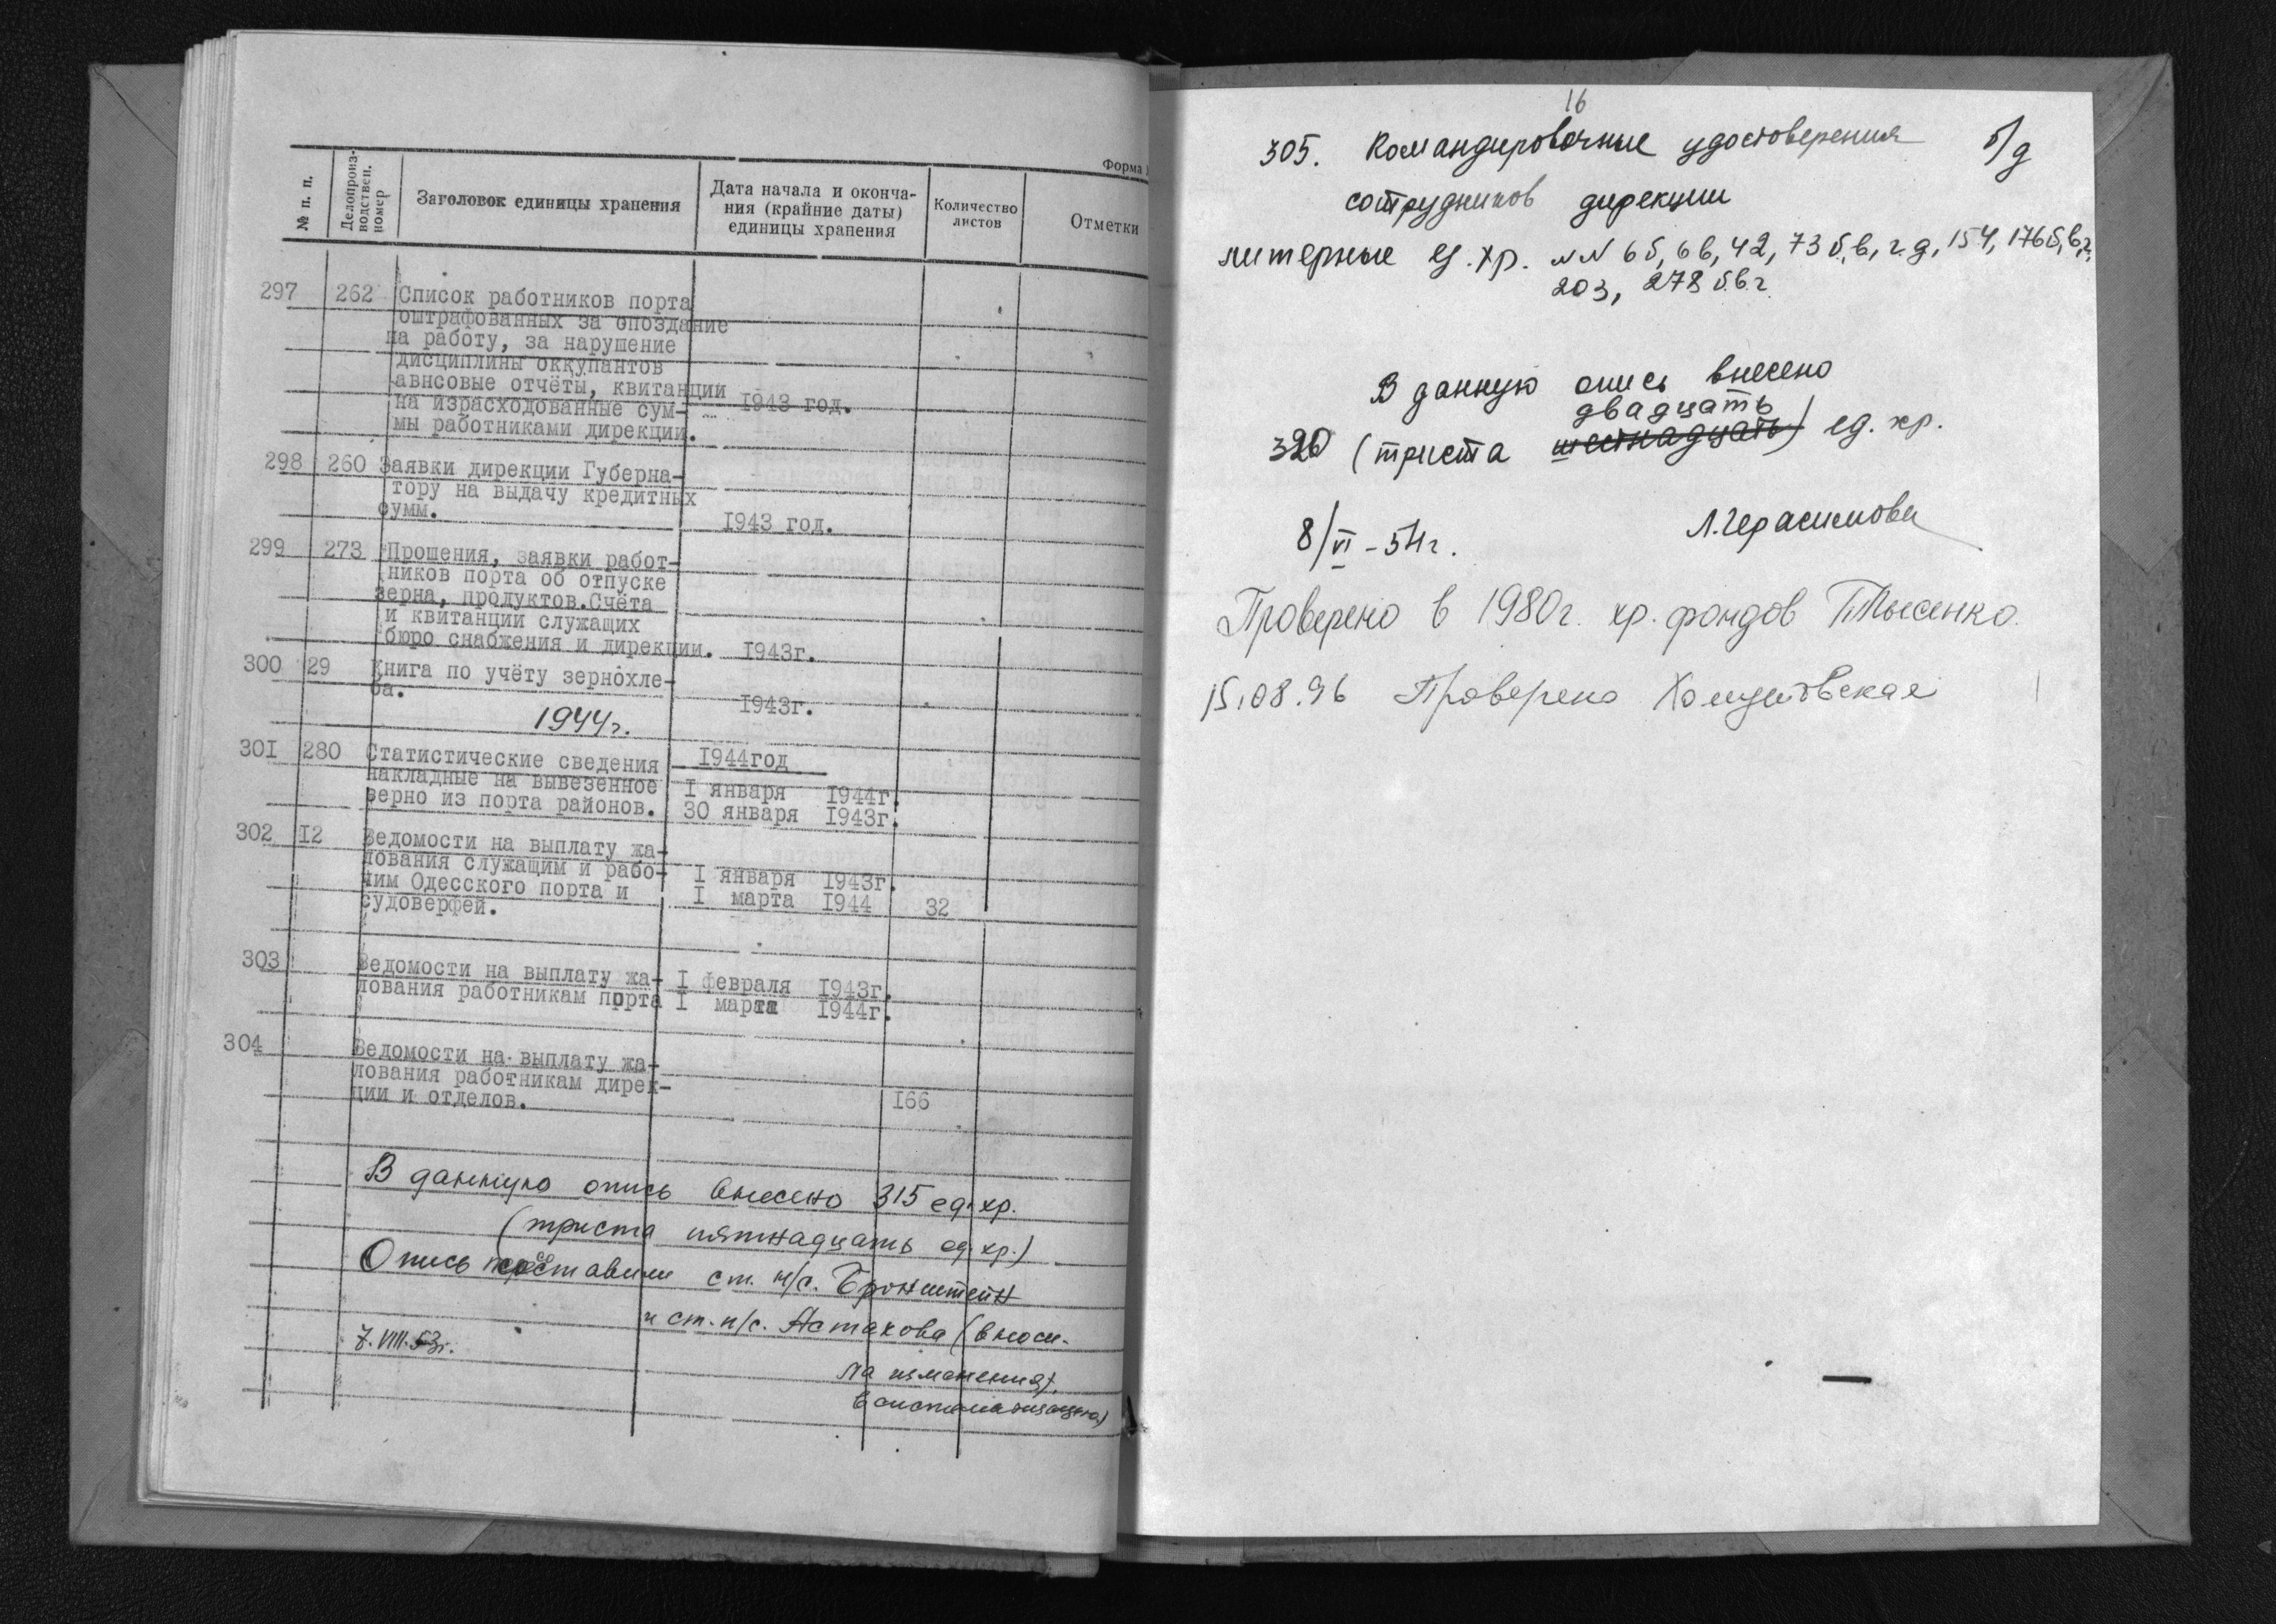 Форма
№ п. п.
Делопроиз-
водствен.
номер
Заголовок единицы хранения
Дата начала и оконча-
ния (крайние даты)
единицы хранения
Количество
листов
Отметки
297 262 Список работников порта
оштрафованных за опоздание
на работу, за нарушение
дисциплины оккупантов
авнсовые отчёты, квитанции
на израсходованные сум- 1943 год.
мы работниками дирекции.
298 260 Заявки дирекции Губерна-
тору на выдачу кредитных
сумм. 1943 год.
299 273 Прошения, заявки работ-
ников порта об отпуске
зерна, продуктов.Счёта
и квитанции служащих
бюро снабжения и дирекции. 1943г.
300 29 Книга по учёту зернохле-
ба. 1943г.
1944г.
301 280 Статистические сведения 1944год
накладные на вывезенное I января 1944г.
зерно из порта районов. 30 января 1943г.
302 I2 Ведомости на выплату жа-
лования служащим и рабо- I января 1943г.
чим Одесского порта и I марта 1944 32
судоверфей.
303 Ведомости на выплату жа- I февраля 1943г.
лования работникам порта I марта 1944г.
304 Ведомости на выплату жа-
лования работникам дирек-
ции и отделов. I66
В данную опись внесено 315 ед. хр.
(триста пятнадцать ед. хр.)
Опись составили ст. н/с. Бронштейн
и ст. н/с. Астахова (вноси-
ла изменения)
7.VIII.53г.
в систематизацию)
16
305. Командировочные удостоверения б/д
сотрудников дирекции
литерные ед. хр. NN 6б, 6в, 42, 73 б, в, г. д, 154, 176б, в, г,
203, 278 б. в. г.
В данную опись внесено
двадцать
320 (триста шестнадцать) ед. хр.
8/VI – 54г. Л. Герасимова
Проверено в 1980г. хр. фондов
15.08.96 Проверено